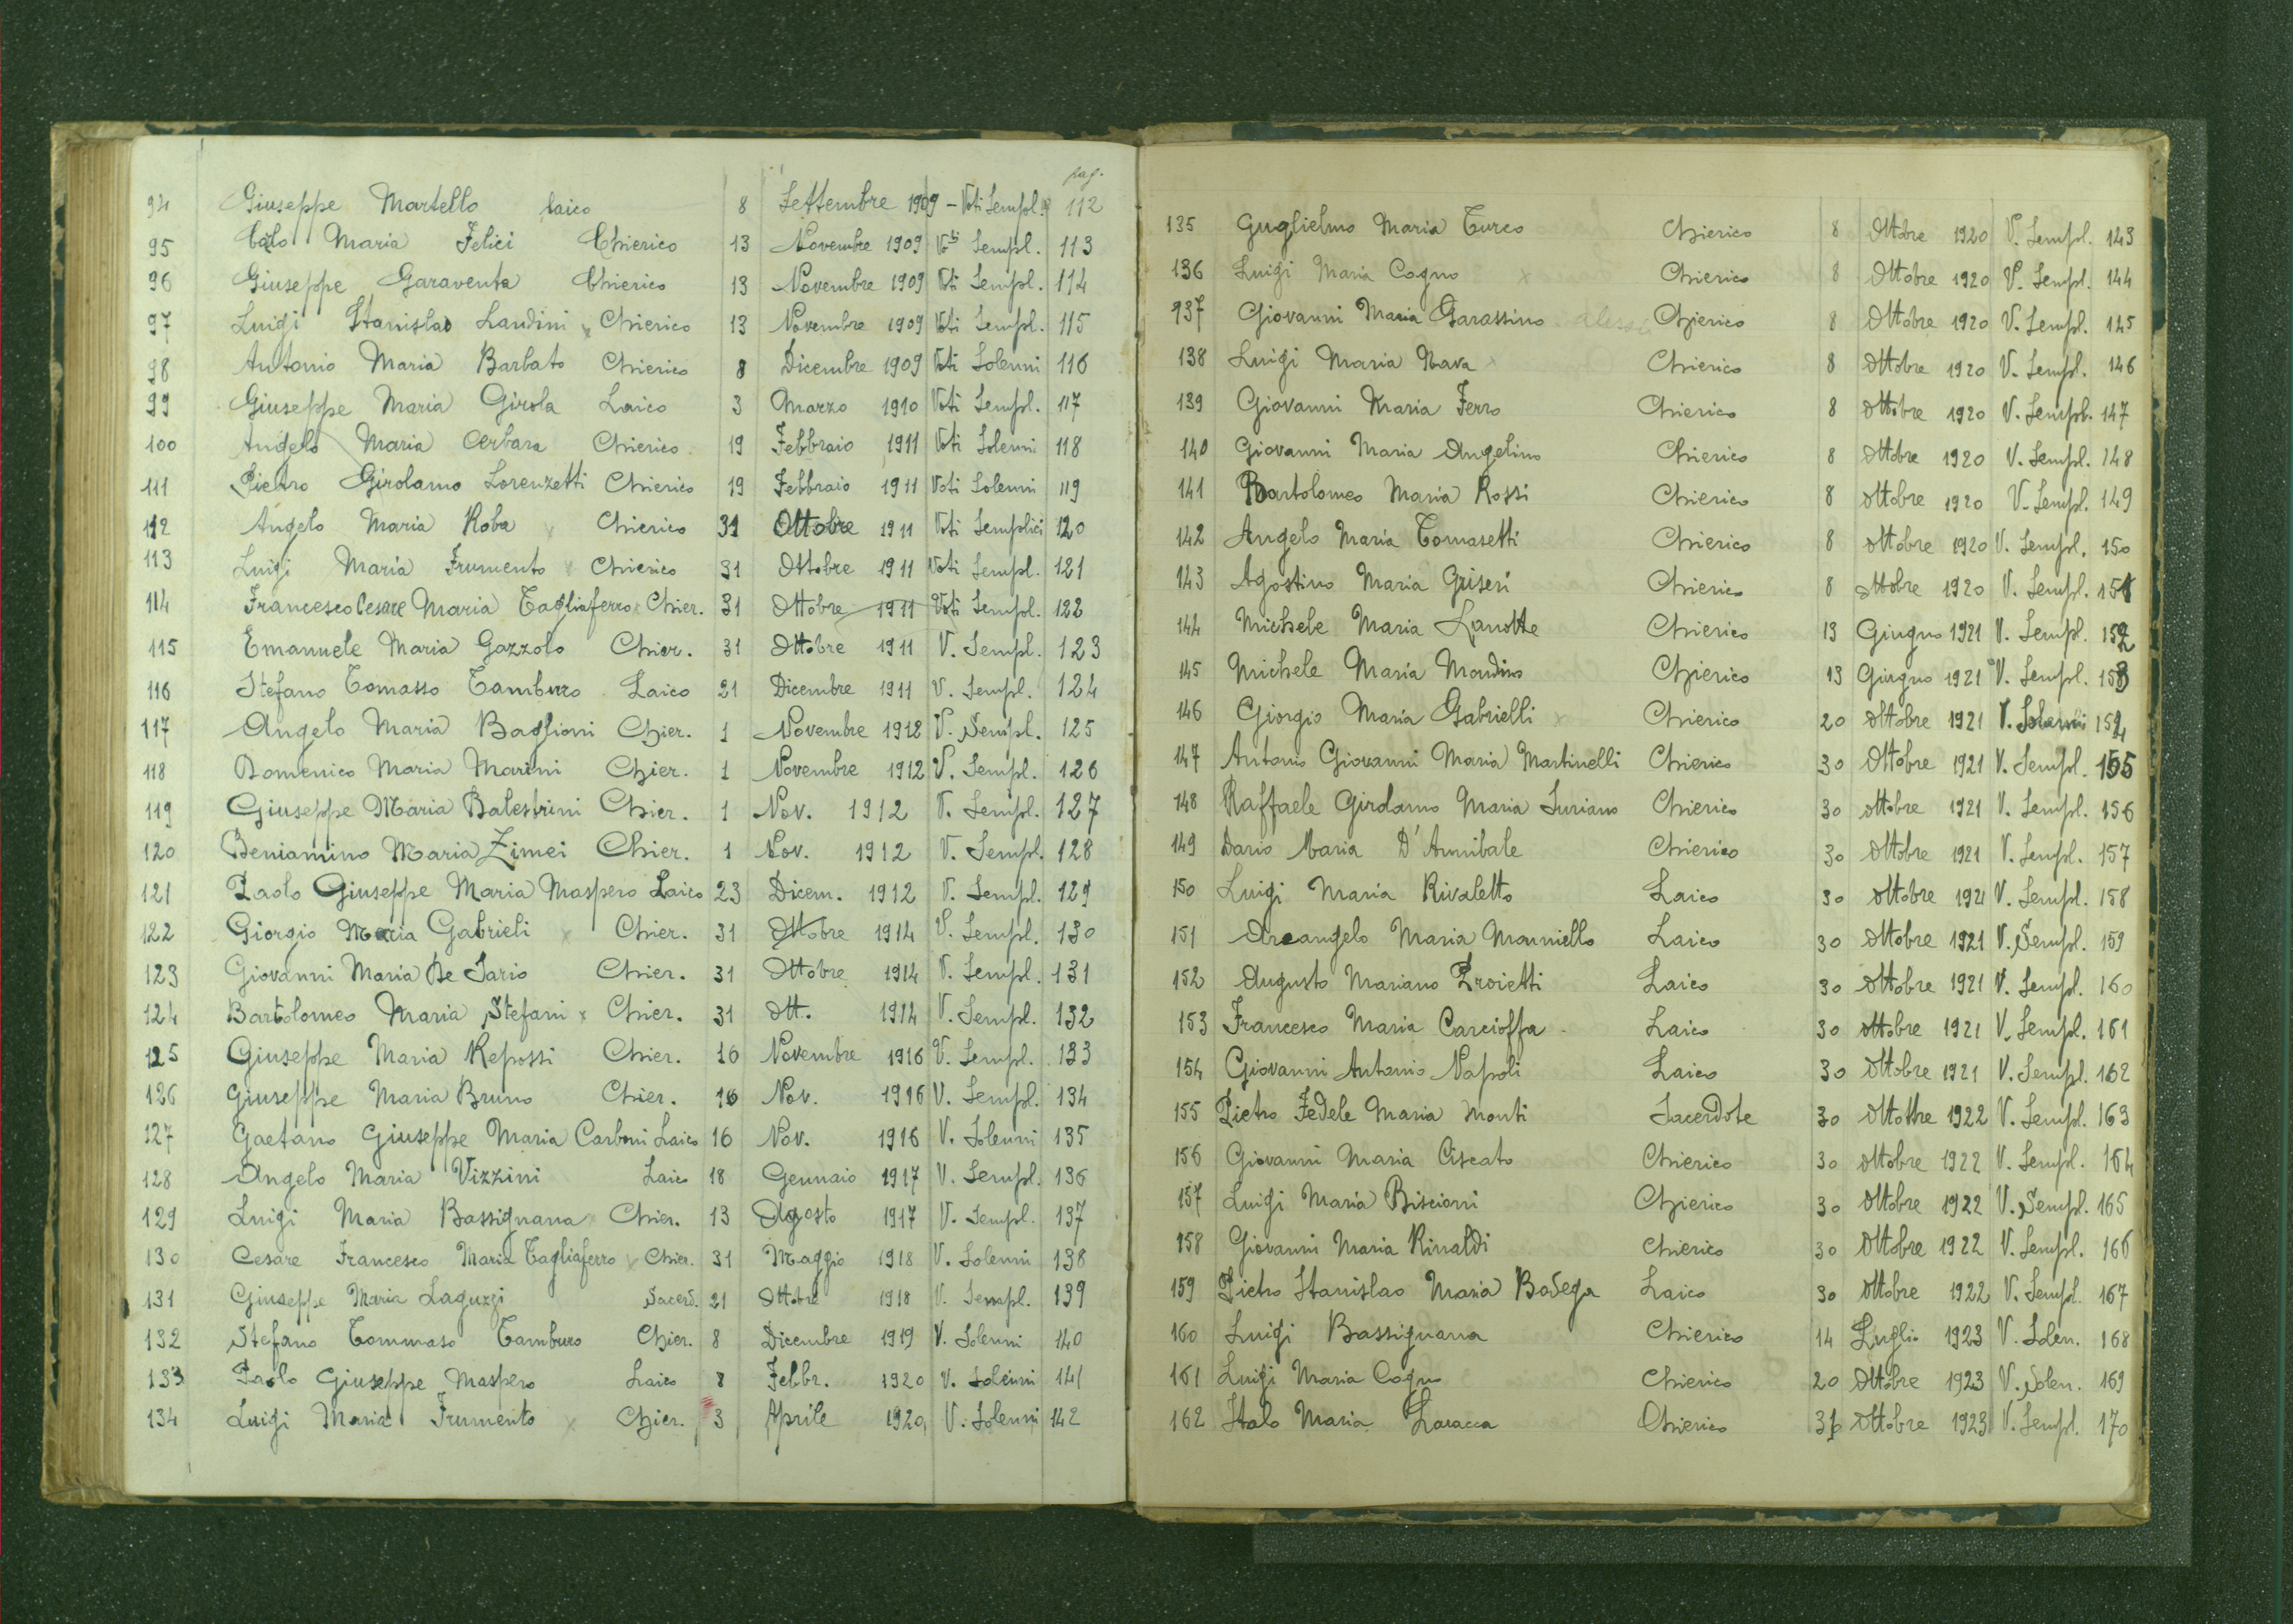 pag.
94 Giuseppe Martello Laico 8 Settembre 1909 - Voti Sempl. 112
95 Carlo Maria Felici Chierico 13 Novembre 1909 Voti Sempl. 113
96 Giuseppe Garaventa Chierico 13 Novembre 1909 Voti Sempl. 114
97 Luigi Stanislao Landini x Chierico 13 Novembre 1909 Voti Sempl. 115
98 Antonio Maria Barbato Chierico 8 Dicembre 1909 Voti Solenni 116
99 Giuseppe Maria Girola Laico 3 Marzo 1910 Voti Sempl. 117
100 Angelo Maria Cerbara Chierico 19 Febbraio 1911 Voti Solenni 118
111 Pietro Girolamo Lorenzetti Chierico 19 Febbraio 1911 Voti Solenni 119
112 Angelo Maria Roba x Chierico 31 Ottobre 1911 Voti Semplici 120
113 Luigi Maria Frumento x Chierico 31 Ottobre 1911 Voti Sempl. 121
114 Francesco Cesare Maria Tagliaferro x Chier. 31 Ottobre 1911 Voti Sempl. 122
115 Emanuele Maria Gazzolo Chier. 31 Ottobre 1911 V. Sempl. 123
116 Stefano Tomasso Tamburo Laico 21 Dicembre 1911 V. Sempl. 124
117 Angelo Maria Baglioni Chier. 1 Novembre 1912 V. Sempl. 125
118 Domenico Maria Marini Chier. 1 Novembre 1912 V. Sempl. 126
119 Giuseppe Maria Balestrini Chier. 1 Nov. 1912 V. Sempl. 127
120 Beniamino Maria Zimei Chier. 1 Nov. 1912 V. Sempl. 128
121 Paolo Giuseppe Maria Maspero Laico 23 Dicem. 1912 V. Sempl. 129
122 Giorgio Maria Gabrieli x Chier. 31 Ottobre 1914 V. Sempl. 130
123 Giovanni Maria De Sario Chier. 31 Ottobre 1914 V. Sempl. 131
124 Bartolomeo Maria Stefani x Chier. 31 Ott. 1914 V. Sempl. 132
125 Giuseppe Maria Repossi Chier. 16 Novembre 1916 V. Sempl. 133
126 Giuseppe Maria Bruno Chier. 16 Nov. 1916 V. Sempl. 134
127 Gaetano Giuseppe Maria Carboni Laico 16 Nov. 1916 V. Solenni 135
128 Angelo Maria Vizzini Laico 18 Gennaio 1917 V. Sempl. 136
129 Luigi Maria Bassignana x Chier. 13 Agosto 1917 V. Sempl. 137
130 Cesare Francesco Maria Tagliaferro x Chier. 31 Maggio 1918 V. Solenni 138
131 Giuseppe Maria Laguzzi Sacerd. 21 Ottobre 1918 V. Sempl. 139
132 Stefano Tommaso Tamburo Chier. 8 Dicembre 1919 V. Solenni 140
133 Paolo Giuseppe Maspero Laico 8 Febbr. 1920 V. Solenni 141
134 Luigi Maria Frumento x Chier. 3 Aprile 1920 V. Solenni 142
135 Guglielmo Maria Turco Chierico 8 Ottobre 1920 V. Sempl. 143
136 Luigi Maria Cogno x Chierico 8 Ottobre 1920 V. Sempl. 144
137 Giovanni Maria Garassino Chierico 8 Ottobre 1920 V. Sempl. 145
138 Luigi Maria Nava x Chierico 8 Ottobre 1920 V. Sempl. 146
139 Giovanni Maria Ferro Chierico 8 Ottobre 1920 V. Sempl. 147
140 Giovanni Maria Angelino Chierico 8 Ottobre 1920 V. Sempl. 148
141 Bartolomeo Maria Rossi Chierico 8 Ottobre 1920 V. Sempl. 149
142 Angelo Maria Tomasetti Chierico 8 Ottobre 1920 V. Sempl. 150
143 Agostino Maria Griseri Chierico 8 Ottobre 1920 V. Sempl. 151
144 Michele Maria Lanotte Chierico 13 Giugno 1921 V. Sempl. 152
145 Michele Maria Mondino Chierico 13 Giugno 1921 V. Sempl. 153
146 Giorgio Maria Gabrielli x Chierico 20 Ottobre 1921 V. Solenni 154
147 Antonio Giovanni Maria Martinelli Chierico 30 Ottobre 1921 V. Sempl. 155
148 Raffaele Girolamo Maria Suriano Chierico 30 Ottobre 1921 V. Sempl. 156
149 Dario Maria D'Annibale Chierico 30 Ottobre 1921 V. Sempl. 157
150 Luigi Maria Rivaletto Laico 30 Ottobre 1921 V. Sempl. 158
151 Arcangelo Maria Manniello Laico 30 Ottobre 1921 V. Sempl. 159
152 Augusto Mariano Proietti Laico 30 Ottobre 1921 V. Sempl. 160
153 Francesco Maria Carcioffa Laico 30 Ottobre 1921 V. Sempl. 161
154 Giovanni Antonio Napoli Laico 30 Ottobre 1921 V. Sempl. 162
155 Pietro Fedele Maria Monti Sacerdote 30 Ottobre 1922 V. Sempl. 163
156 Giovanni Maria Ciscato Chierico 30 Ottobre 1922 V. Sempl. 164
157 Luigi Maria Biscioni Chierico 30 Ottobre 1922 V. Sempl. 165
158 Giovanni Maria Rinaldi Chierico 30 Ottobre 1922 V. Sempl. 166
159 Pietro Stanislao Maria Bodega Laico 30 Ottobre 1922 V. Sempl. 167
160 Luigi Bassignana Chierico 14 Luglio 1923 V. Solen. 168
161 Luigi Maria Cogno Chierico 20 Ottobre 1923 V. Solen. 169
162 Italo Maria Laracca Chierico 31 Ottobre 1923 V. Sempl. 170